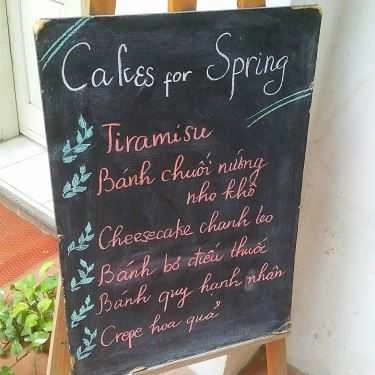 Cakes for Spring
Tiramisu
Bánh chuối nướng
nho khô
Cheesecake chanh leo
Bánh bỏ điếu thuốc
Bánh quy hạnh nhân
Crepe hoa quả